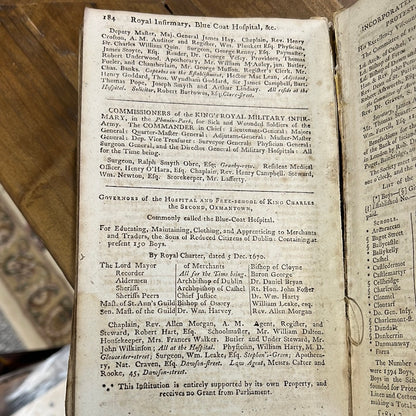 184 Royal Infirmary, Blue Coat Hospital, &c.
Deputy Master, Maj. General James Hay. Chaplain, Rev. Henry
Crofton, A. M. Auditor and Register, Wm. Plunkett Esq. Physician,
Dr. Charles William Quin. Surgeon, George Renny, Esq. Paymaster,
James Stoyte, Esq. Reader, Dr. George Wesley Prizley. Thomas
Robert Underwood, Apothecary. Mr. William M'Aulay, jun. Butler,
Fueler, and Chamberlain, Mr. George Musson. Register's Clerk, Mr.
Chas. Banks. on the Establishment, Hector Mac Lean, Adjutant,
Henry Goddard, Thos. Windham Goddard, Sir James Campbell, Bart.
Thomas Pope, Joseph Smyth and Arthur Lindsay. All reside at the
Hospital. Solicitor, Robert Burrowes, Esq.
COMMISSIONERS of the KING'S ROYAL MILITARY INFIR-
MARY, in the Phœnix-Park, for Sick and Wounded Soldiers of the
Army. The COMMANDER in Chief: Lieutenant-General: Majors
General: Quarter-Master General: Adjutant-General: Muster-Master
General: Dep. Vice Treasurer: Surveyor General: Physician General:
Surgeon General, and the Director General of Military Hospitals: All
for the Time being.
Surgeon, Ralph Smyth Obre, Esq. Granby-row. Resident Medical
Officer, Henry O'Hara, Esq. Chaplain, Rev. Henry Campbell. Steward,
Wm. Newton, Esq. Storekeeper, Mr. Lafferty.
Governors of the Hospital and Free-school of King Charles
the Second, Oxmantown,
Commonly called the Blue-Coat Hospital.
For Educating, Maintaining, Clothing, and Apprenticing to Merchants
and Traders, the Sons of Reduced Citizens of Dublin: Containing at
present 130 Boys.
By Royal Charter, dated 5 Dec. 1670.
The Lord Mayor of Merchants Bishop of Cloyne
Recorder All for the Time being. Baron George
Aldermen Archbishop of Dublin Dr. Daniel Bryan
Sheriffs Archbishop of Cashel Rt. Hon. John Foster
Sheriffs Peers Chief Justice Dr. Wm. Harty
Mast. of St. Ann's Guild Bishop of Ossory William Leake, esq.
Sen. Mast. of the Guild Dr. Wm. Harvey Rev. Allen Morgan.
Chaplain, Rev. Allen Morgan, A. M. Agent, Register, and
Steward, Robert Hart, Esq. Schoolmaster, Mr. William Dalton.
Housekeeper, Mrs. Frances Walker. Butler and Under Steward, Mr.
John Wilkinson; All at the Hospital. Physician, William Harty, M. D.
Gloucester-street; Surgeon, Wm. Leake; Esq. Stephen's-Green; Apothe-
cary, Nat. Craven, Esq. Dawson-street. Law Agent, Messrs. Cater and
Rooke, 45, Dawson-street.
*** This Institution is entirely supported by its own Property, and
receives no Grant from Parliament.
INCORPORATED
PROTES
SCHOOLS
Ardbraccan
Arklow
Athlone
Baggot Street
Ballycastle
Ballykelly
Cashel
Castlebar
Castledermot
Celbridge
Charleville
Clonmel
Clontarf
Connaught
Do. Gen. Infy.
Charlemont
Dundalk
The Number
were 1594 Boys
in the Eleven
pointed,